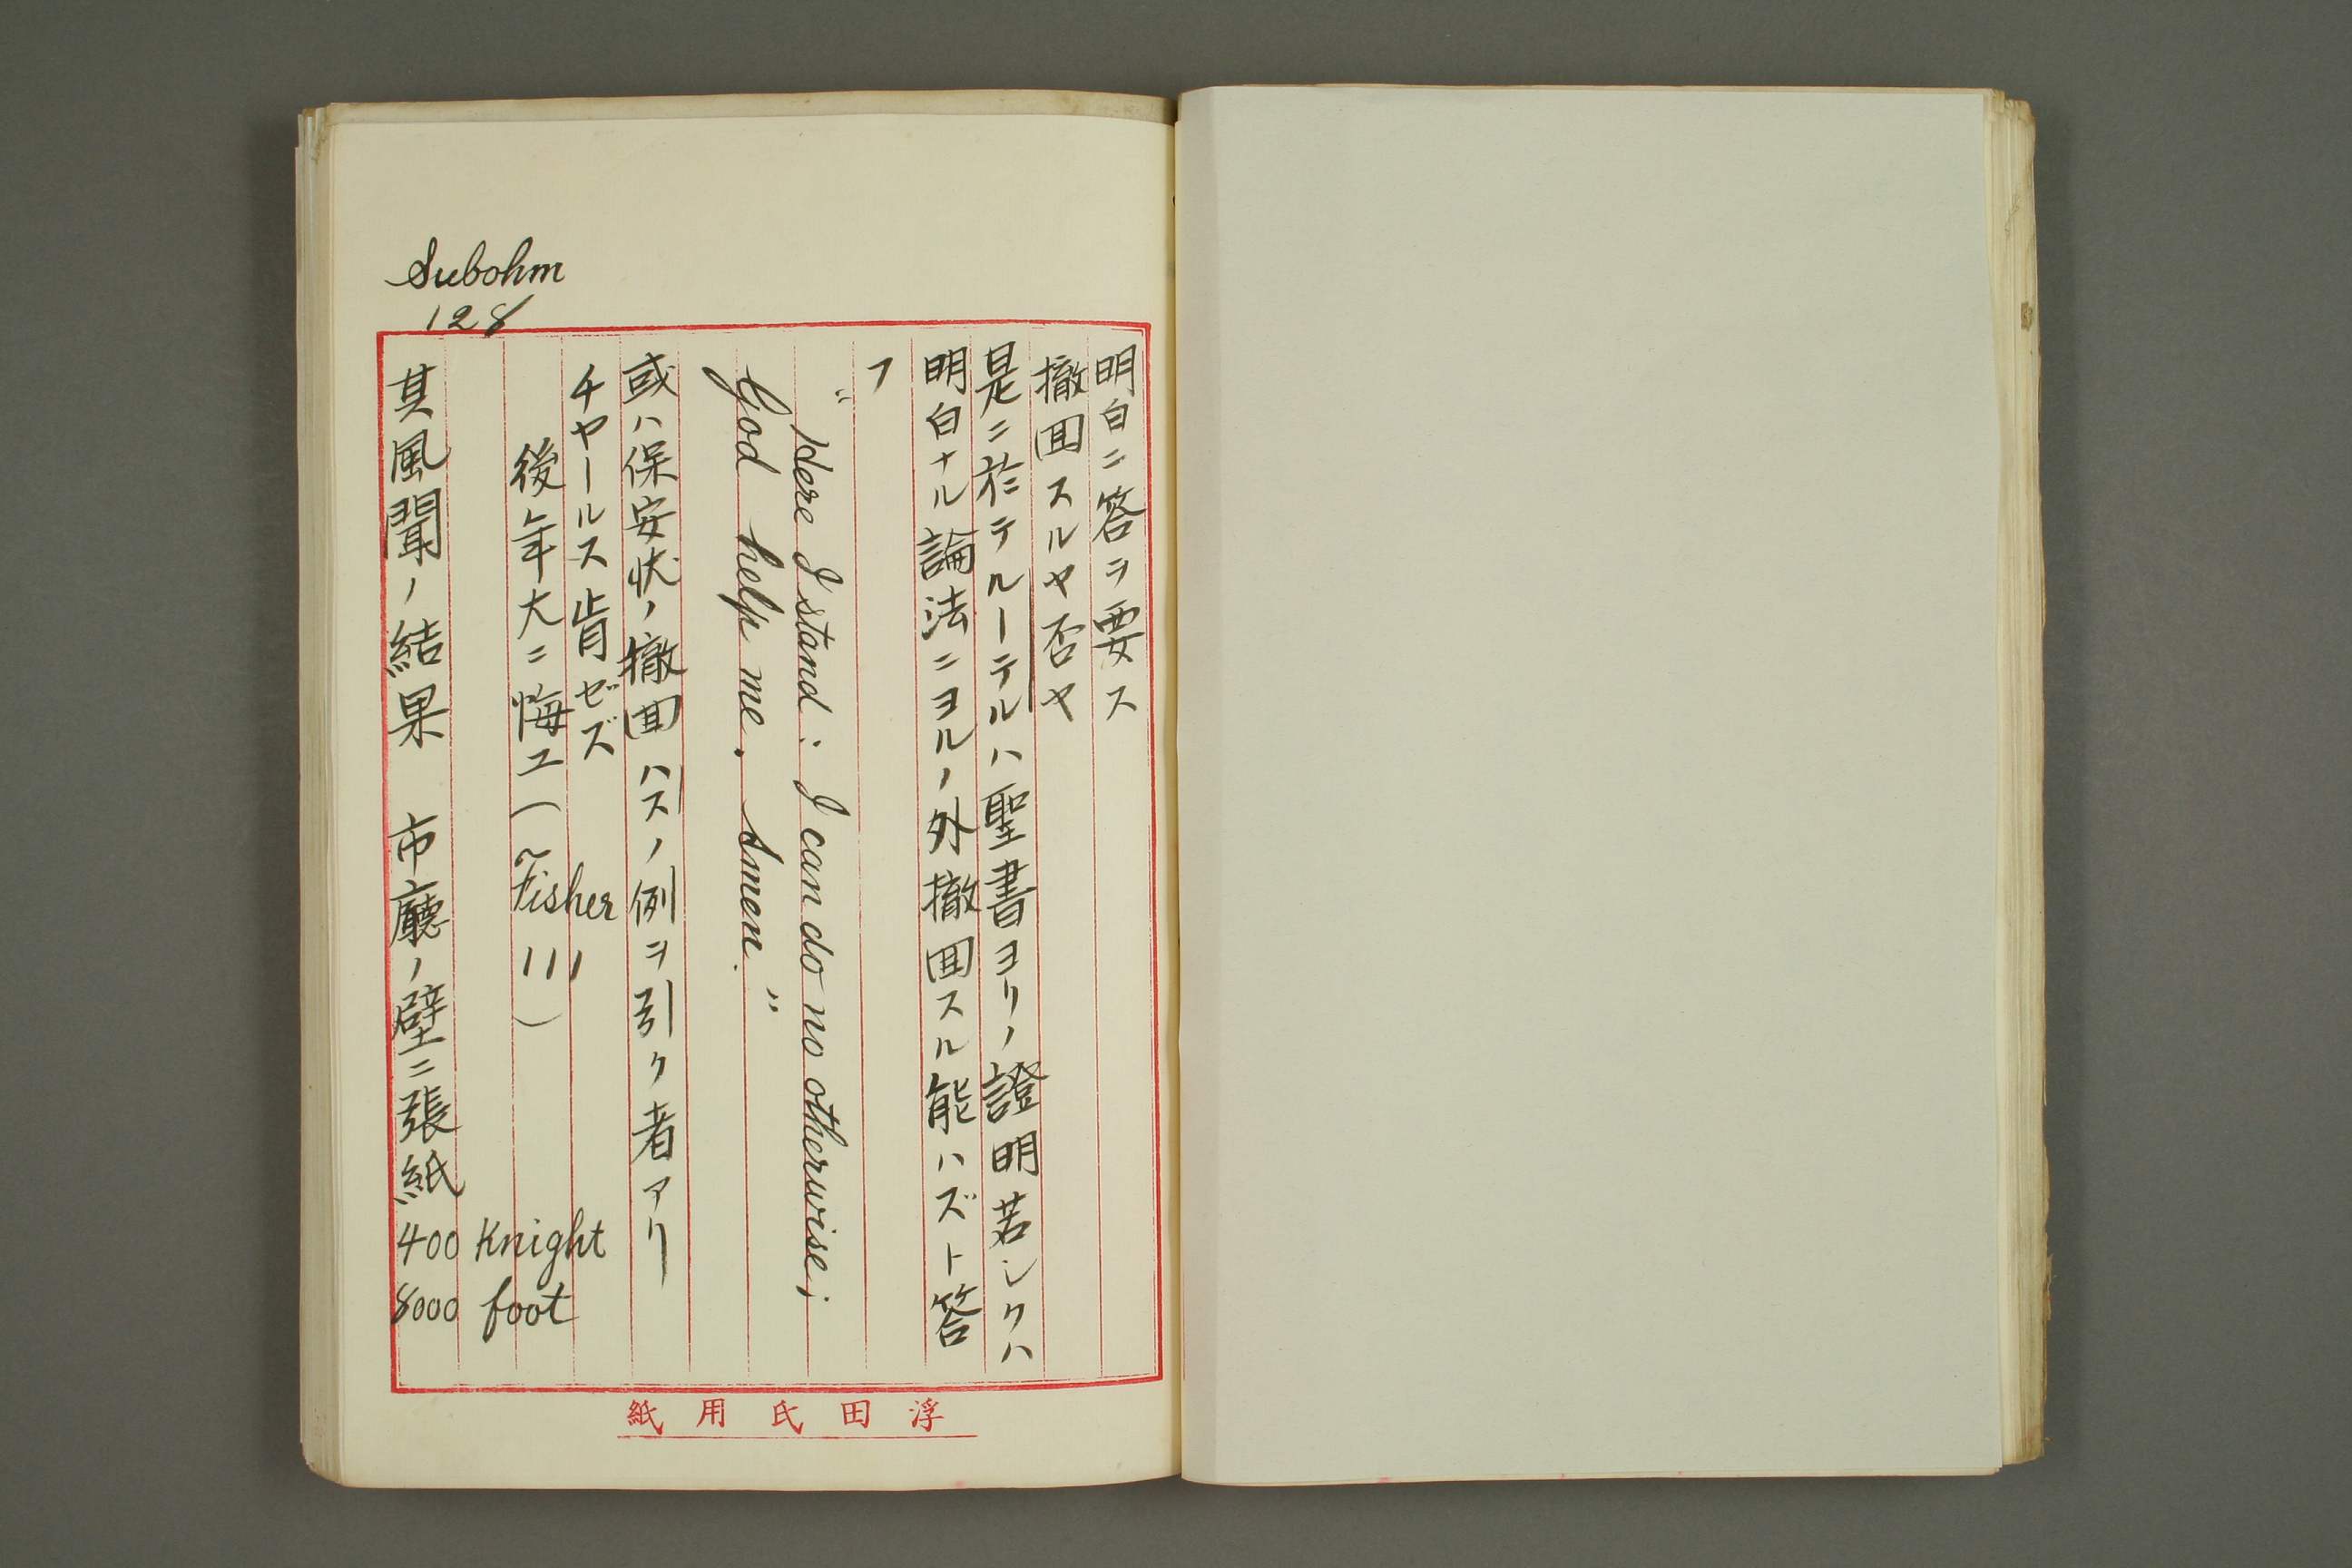 明白ニ答ヲ要ス
撤囬スルヤ否ヤ
是ニ於テルーテルハ聖書ヨリノ證明若シクハ
明白ナル論法ニヨルノ外撤囬スル能ハズト答
フ
"Here I stand: I can do no otherwise;
God help me. Amen."
或ハ保安状ノ撤囬ハスノ例ヲ引ク者アリ
チャールス肯ゼズ
後年大ニ悔ユ(Fisher 111)
Subohm
128
其風聞ノ結果 市廳ノ壁ニ張紙
400 Knight
8000 foot
浮田氏用紙